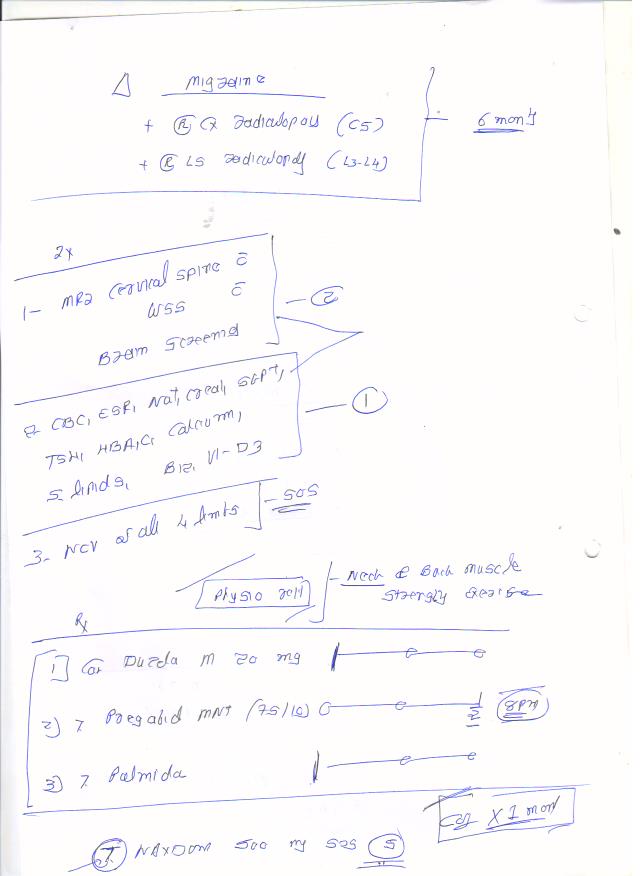 Δ Migraine
+ Ⓡ Cx radiculopathy (C5)
+ Ⓡ LS radiculopathy (L3-L4)
6 month
1- MRI Cervical Spine c̄
WSS c̄
Brain Screening
②
2- CBC, ESR, Na+, Creat, SGPT,
TSH, HBA1C, Calcium,
S. lipids, B12, Vi-D3
①
3- NCV of all 4 limbs
SOS
Physio
Neck & Back muscle
Rx
1) Cap Duzela M 20 mg
2) T Pregabid MNT (75/10)
8pm
3) T Palmida
X 1 month
T NAXDOM 500 mg SOS ⑤